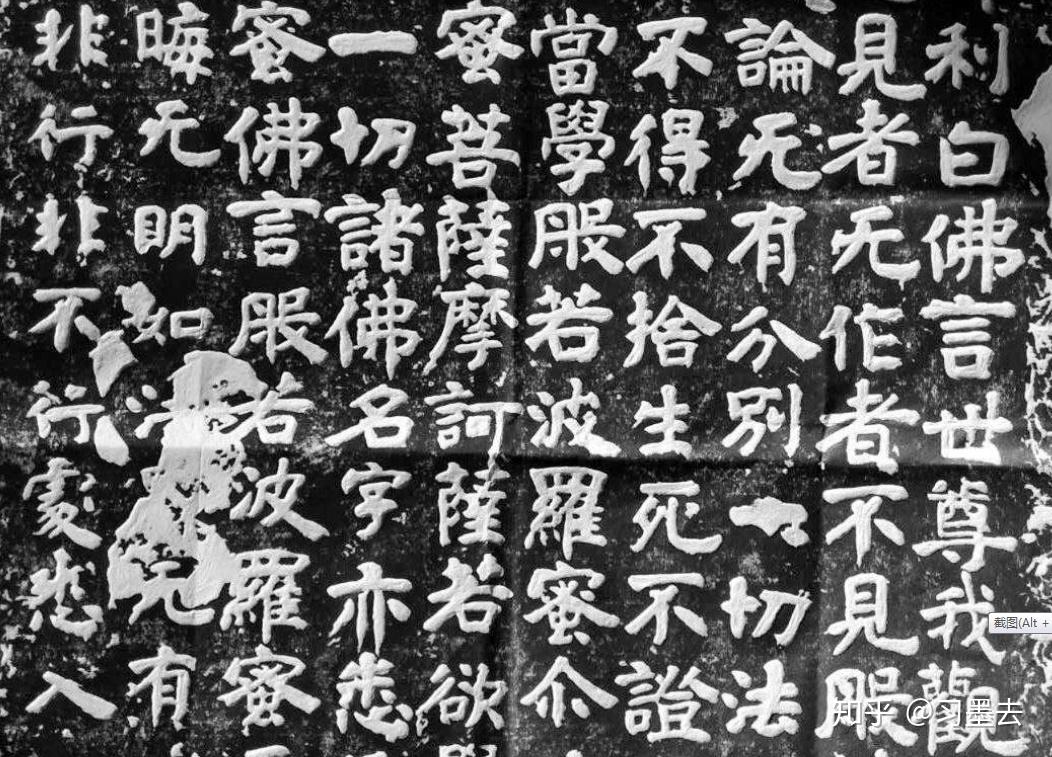 利白佛言世尊我觀
見者无作者不見般
論无有分别一切法
不得不捨生死不證
當學般若波羅蜜尒
蜜菩薩摩訶薩若欲
一切諸佛名字亦悉
蜜佛言般若波羅蜜
晦无明如法无有
非行非不行處悉入
截图(Alt +
知乎 @习墨去